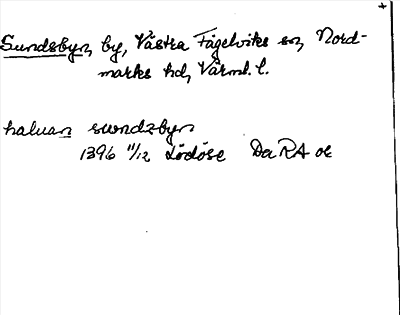 Sundsbyn, by, Västra Fågelviks sn, Nord-
marks hd, Värml. l.
haluan sundzbyn
1396 11/12 Lödöse Da RA or